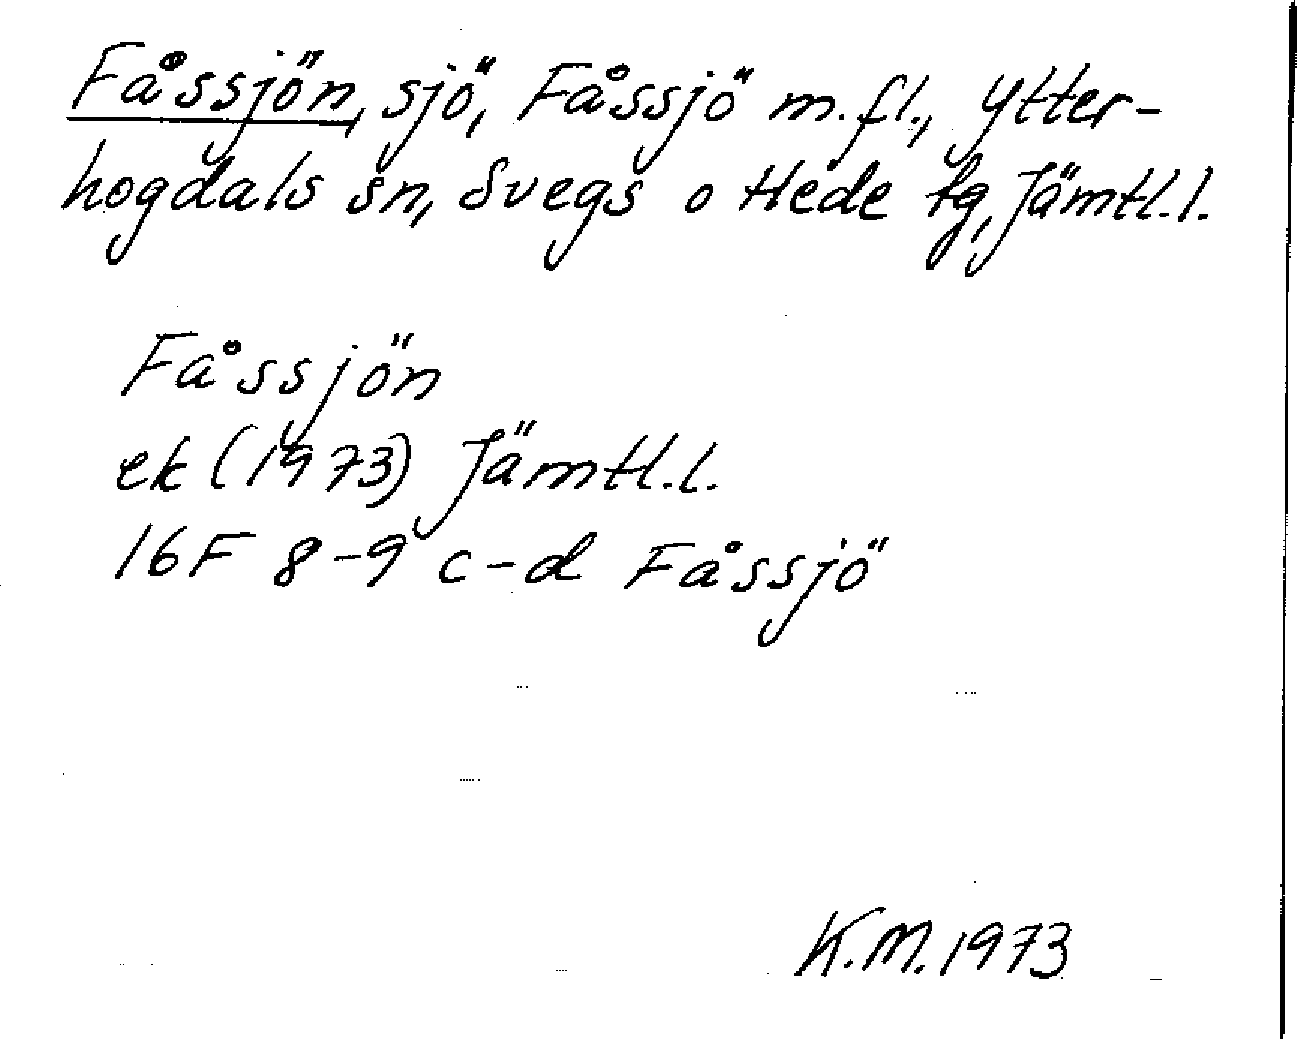 Fåssjön, sjö, Fåssjö m.fl., Ytter-
hogdals sn, Svegs o Hede tg, Jämtl.l.
Fåssjön
ek (1973) Jämtl.l.
16F 8-9 c-d Fåssjö
K.M. 1973